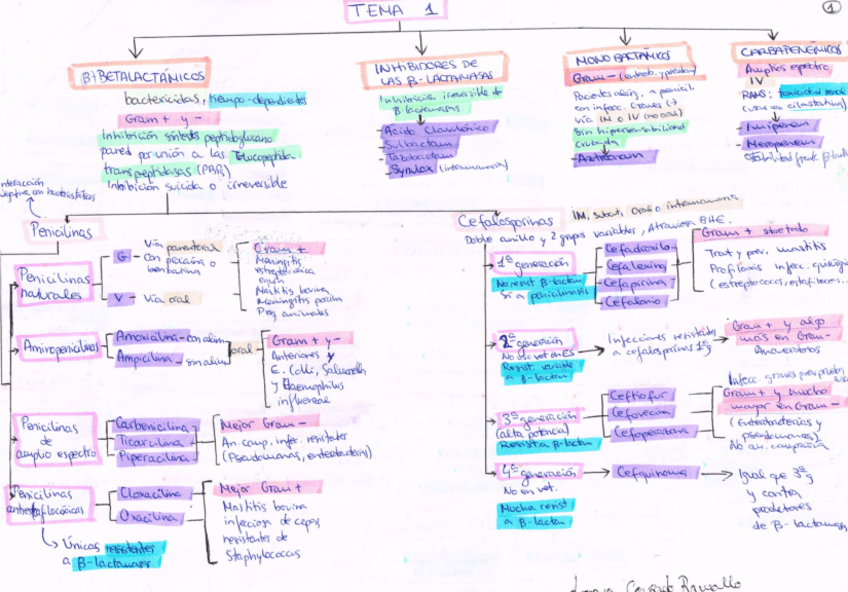 TEMA 1
1
β+BETALACTÁMICOS
bactericidas, tiempo-dependientes
Gram + y -
Inhibición síntesis peptidoglucano
pared por unión a las
transpeptidasas (PAR)
Inhibición suicida o irreversible
INHIBIDORES DE
LAS β-LACTAMASAS
Inhibición irreversible de
β-lactamasas
- Ácido Clavulánico
- Sulbactam
- Tazobactam
- Synulox (intramamario)
MONOBACTÁMICOS
Gram -
Pacientes alérg. a penicil
con infecc. Crónes (-)
vía IM o IV (no oral)
Sin hipersensibilidad
cruzada
- Aztreonam
CARBAPENÉMICOS
Amplios espectro
IV
RAMS: toxicidad renal
(usar con cilastatina)
- Imipenem
- Meropenem
Interacción
negativa con bacteriostáticos
Penicilinas
Penicilinas
naturales
G
Vía parenteral
con procaína o
benzatina
V - Vía oral
Gram +
Meningitis
estreptocócica
Mastitis bovina
Meningitis porcina
Peq animales
Aminopenicilinas
Amoxicilina - con alim
Ampicilina - sin alim
oral
Gram + y -
Anteriores y
E. Coli, Salmonella
y Haemophilus
influenzae
Penicilinas
de
amplio espectro
Carbenicilina
Ticarcilina
Piperacilina
Mejor Gram -
An. comp. infec. resistentes
(Pseudomonas, enterobacterias)
Penicilinas
antiestafilocócicas
Cloxacilina
Oxacilina
Mejor Gram +
Mastitis bovina
infecciosa de cepas
resistentes de
Staphylococcus
Únicas resistentes
a β-lactamasas
Cefalosporinas
IM, subcut, Oral o intramamaria
Doble anillo y 2 grupos variables, Atraviesa BHE.
1ª generación
No resist β-lactam
Si a penicilinasas
Cefadroxilo
Cefalexina
Cefapirina
Cefalonio
Gram + sobretodo
Trat y prev. mastitis
Profilaxis infecc. quirúrgica
(estreptococos, estafilococos...
2ª generación
No uso vet en ES
Resist. variable
a β-lactam
Infecciones resistentes
a cefalosporinas 1ªg
Gram + y algo
más en Gram -
Anaerobios
3ª generación
(alta potencia)
Resist a β-lactam
Ceftiofur
Cefovecina
Cefoperazona
Infecc. graves
Gram + y mucho
mayor en Gram -
(Enterobacterias y
pseudomonas)
No an. compañía
4ª generación
No en vet.
Mucha resist
a β-lactam
Cefquinoma
Igual que 3ª g
y contra
productores
de β-lactamasas